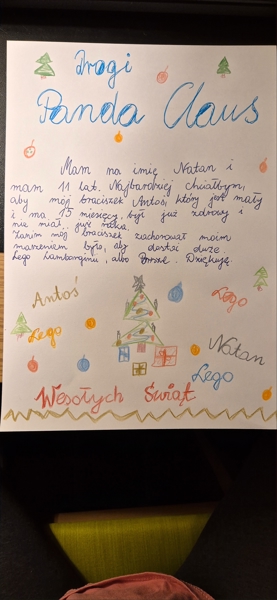 Drogi
Panda Claus
Mam na imię Natan i
mam 11 lat. Najbardziej chciałbym,
aby mój braciszek Antoś, który jest mały
i ma 15 miesięcy, był już zdrowy i
nie miał już raka.
Zanim mój braciszek zachorował moim
marzeniem było, aby dostać duże
Lego Lamborghini, albo Porsche. Dziękuję.
Antoś
Lego
Lego
Natan
Lego
Wesołych Świąt